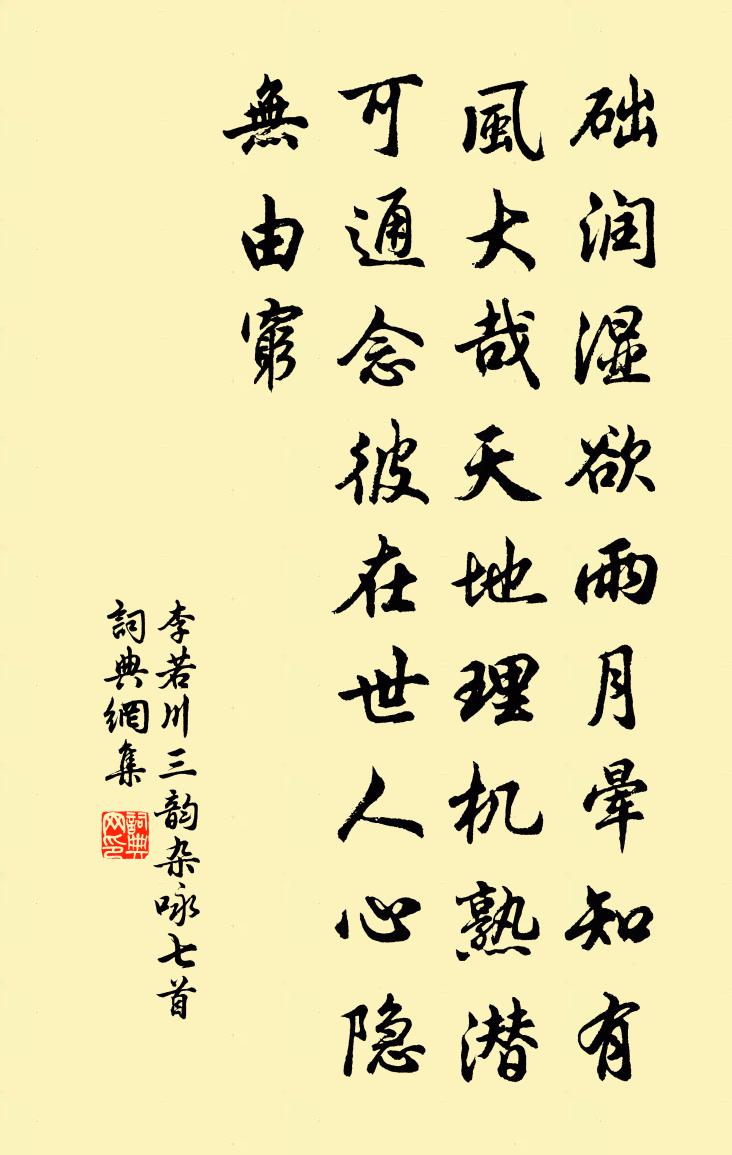 础润湿欲雨月晕知有
風大哉天地理机熟潜
可通念彼在世人心隐
無由窮
李若川三韵杂咏七首
詞典網集
詞典
网印